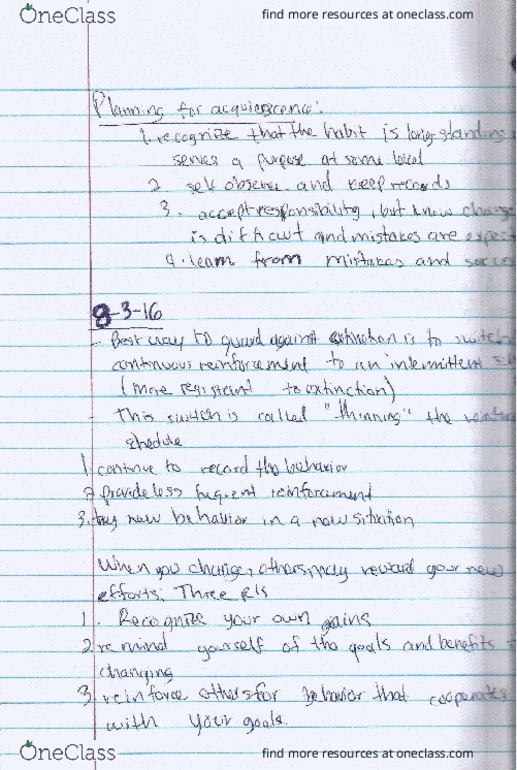 OneClass find more resources at oneclass.com
Planning for acquiescence:
1. recognize that the habit is long standing
serves a purpose at some level
2 self observe and keep records
3. accept responsibility, but know change
is difficut and mistakes are expect
4. learn from mistakes and succe
8-3-16
- Best way to guard against extinction is to switch
continuous reinforcement to an intermittent
(more resistant to extinction)
- This switch is called "thinning" the reinfor
shedule
1 continue to record the behavior
2 provide less frequent reinforcement
3. try new behavior in a new situation
When you change, others may reward your new
efforts; Three R's
1. Recognize your own gains
2 remind yourself of the goals and benefits
changing
3 reinforce others for behavior that cooperates
with your goals.
OneClass find more resources at oneclass.com